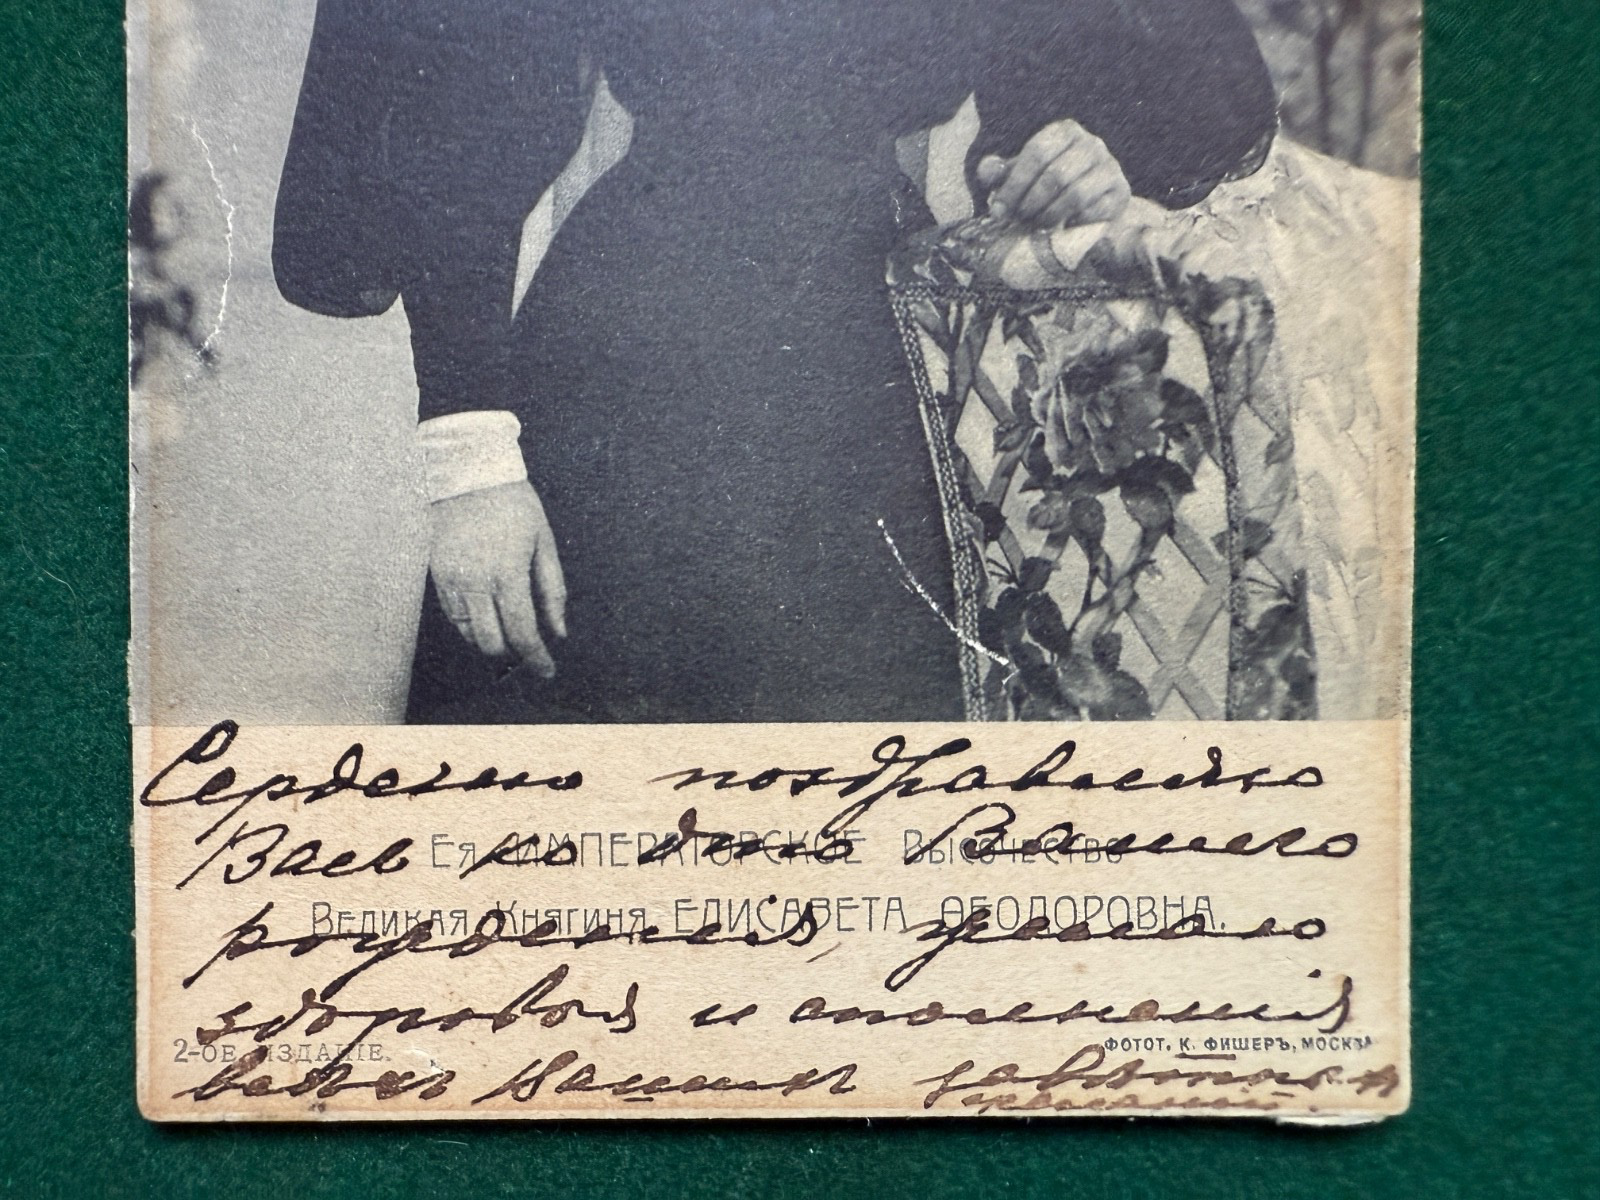 Сердечно поздравляю
Васъ со днемъ Вашего
Ея ИМПЕРАТОРСКОЕ Высочество
Великая Княгиня ЕЛИСАВЕТА ѲЕОДОРОВНА.
рожденія, желаю
здоровья и исполненія
2-ОЕ ИЗДАНІЕ.
ФОТОТ. К. ФИШЕРЪ, МОСКВА
всѣхъ Вашихъ завѣтныхъ
желаній.